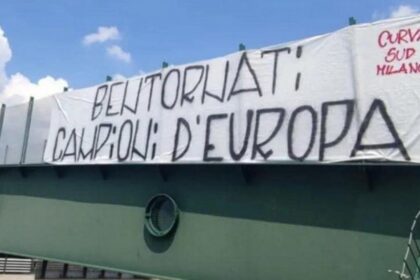 BENTORNATI
CAMPIONI D'EUROPA
CURVA
SUD
MILANO